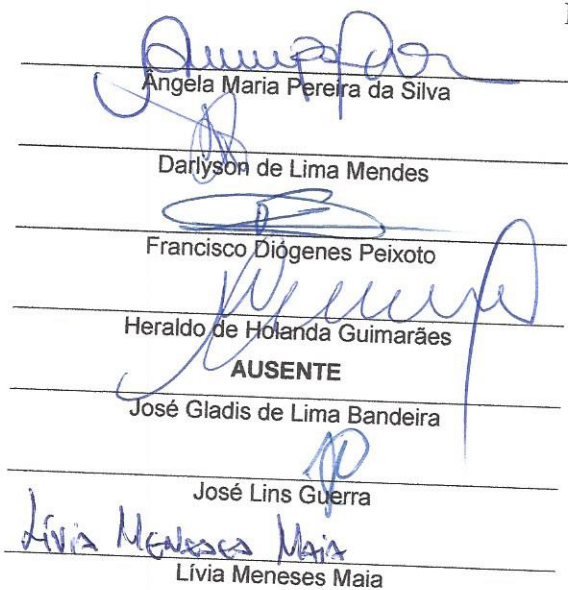 Ângela Maria Pereira da Silva
Darlyson de Lima Mendes
Francisco Diógenes Peixoto
Heraldo de Holanda Guimarães
AUSENTE
José Gladis de Lima Bandeira
José Lins Guerra
Lívia Meneses Maia
Lívia Meneses Maia